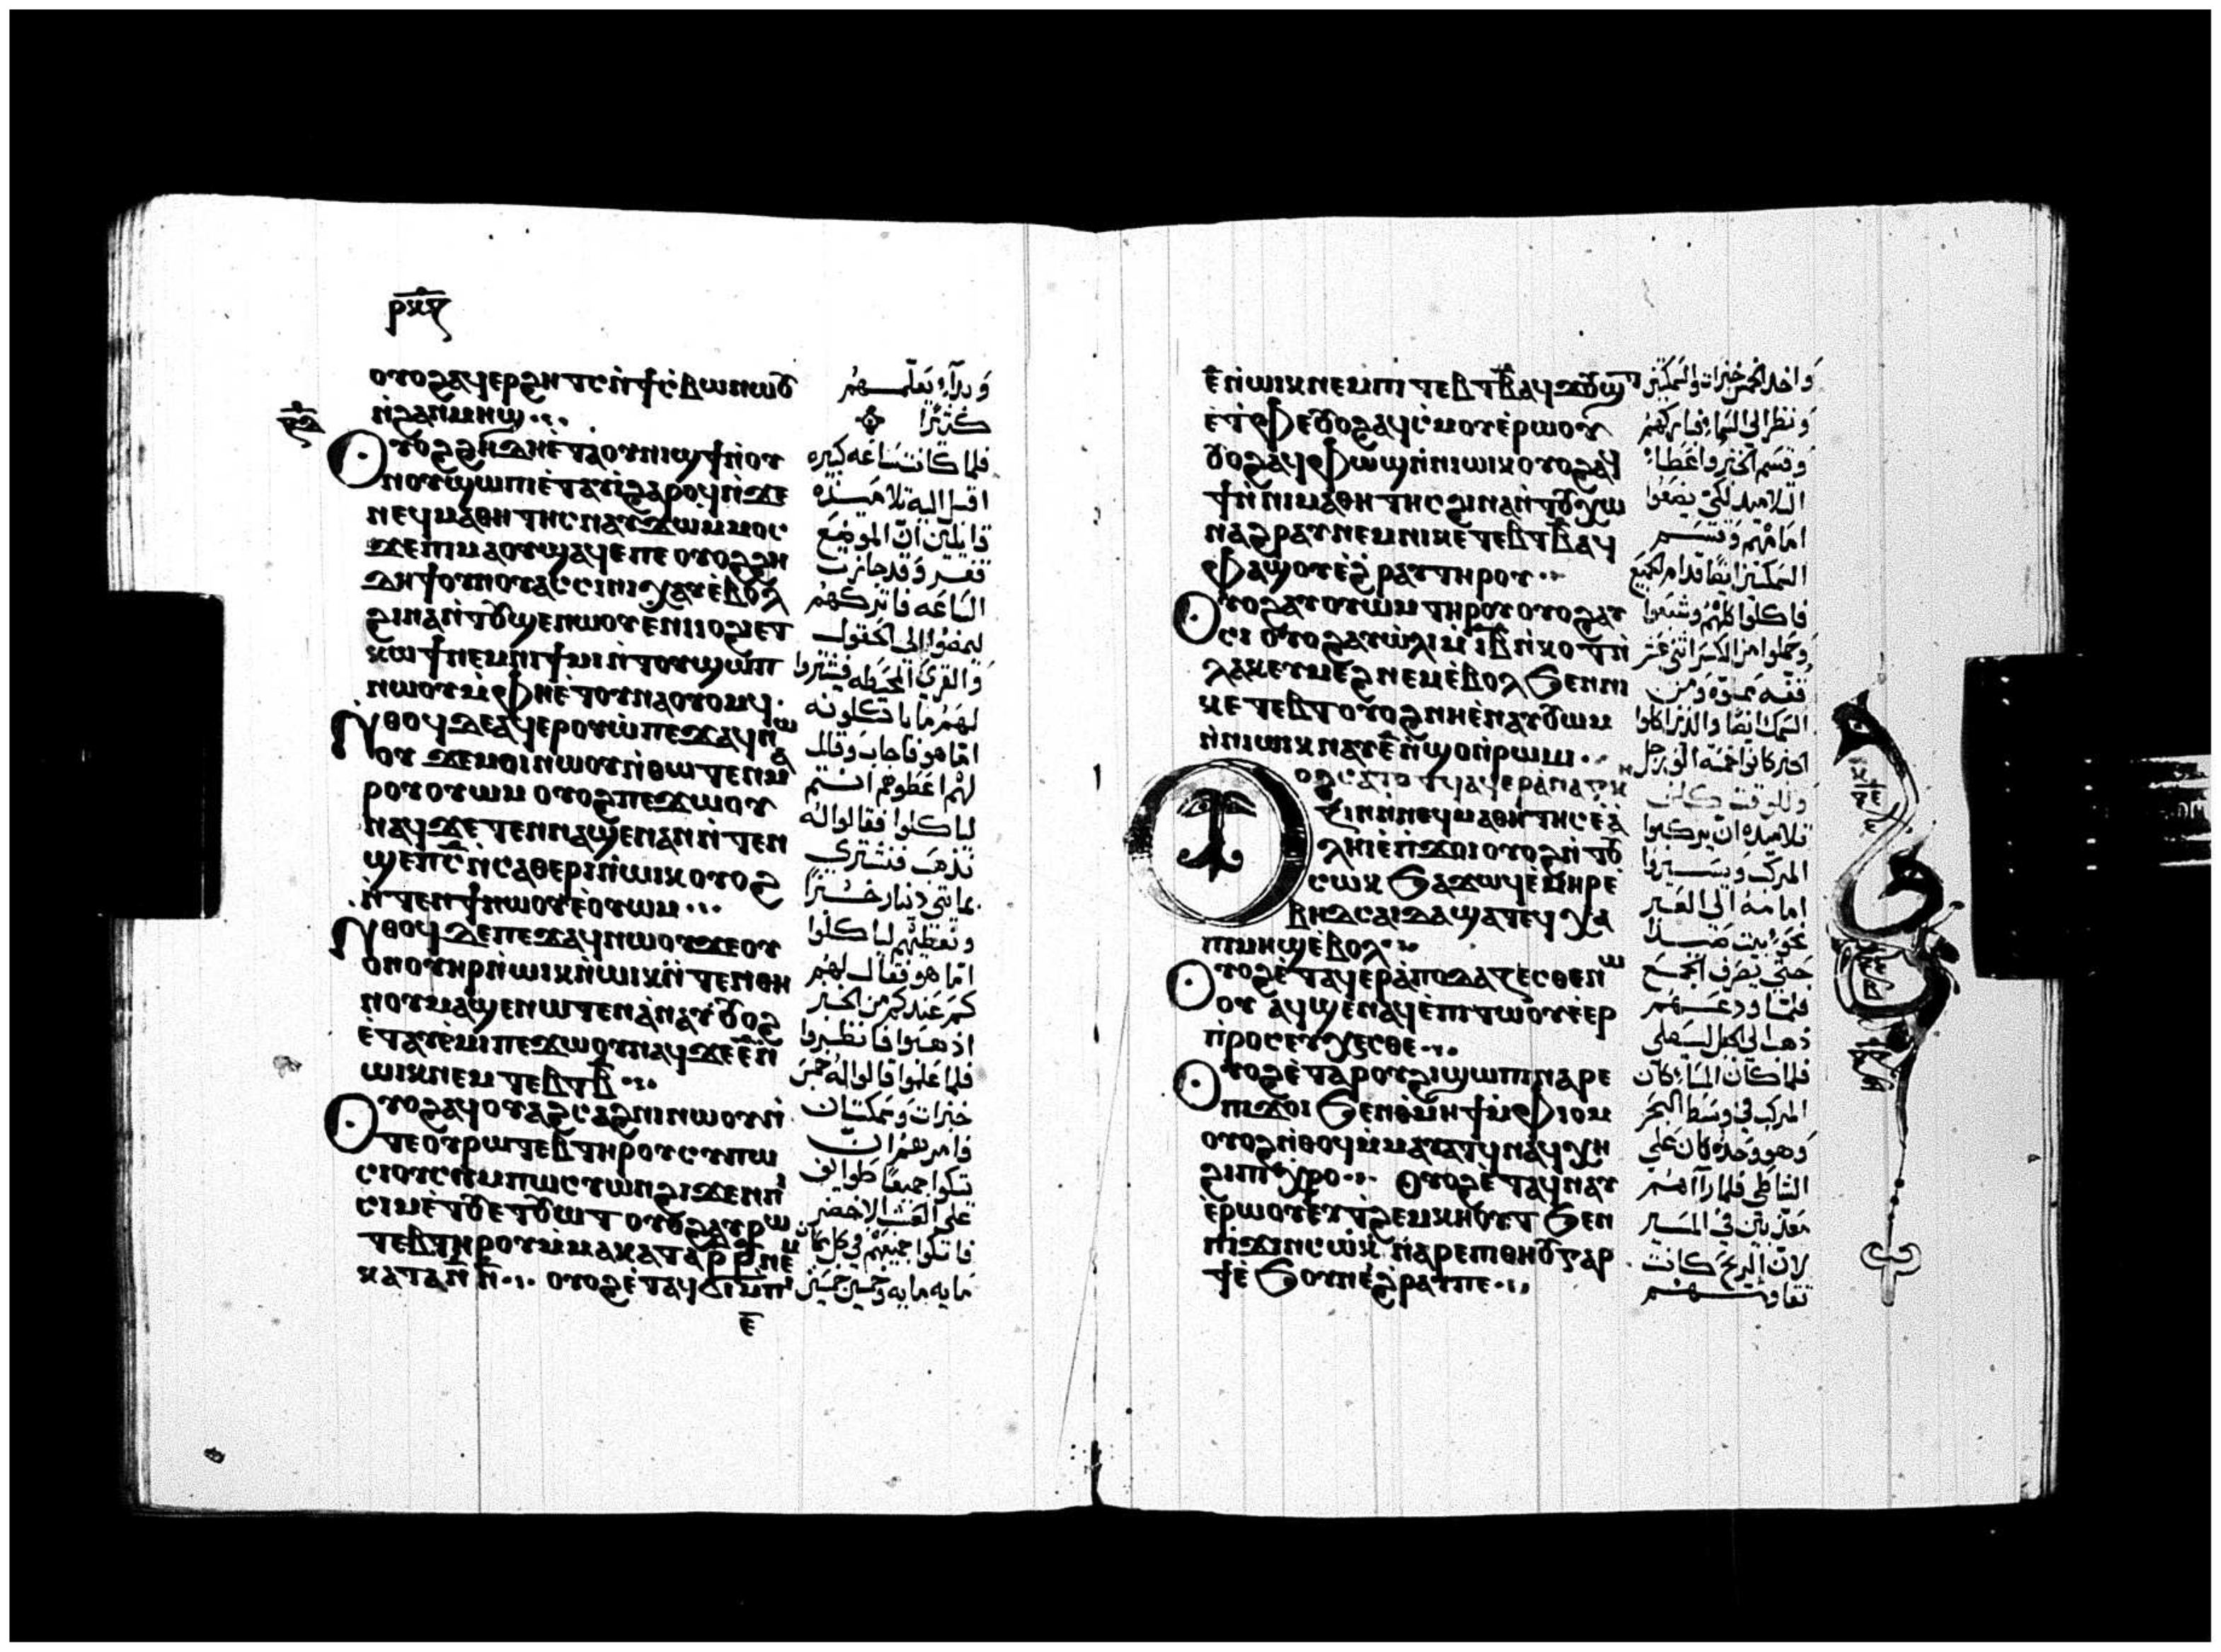 ⲣⲝⲍ
ⲟⲩⲟϩⲁϥⲉⲣϩⲏⲧⲥⲛ̀ϯⲥ̀ⲃⲱⲛⲱⲟⲩ
ⲛ̀ϩⲁⲛⲙⲏϣ
ⲟⲩⲟϩϩⲏⲇⲏⲉ̀ⲧⲁⲟⲩⲛⲓϣϯⲛ̀ⲟⲩ
ⲛⲟⲩϣⲱⲡⲓⲉ̀ⲧⲁⲩⲓ̀ϩⲁⲣⲟϥⲛ̀ϫⲉ
ⲛⲉϥⲙⲁⲑⲏⲧⲏⲥⲛⲁⲩϫⲱⲙⲙⲟⲥ
ϫⲉⲡⲓⲙⲁⲟⲩϣⲁϥⲉⲡⲉⲟⲩⲟϩϩⲏ
ⲇⲏϯⲟⲩⲛⲟⲩⲁⲥⲥⲓⲛⲓⲭⲁⲩⲉ̀ⲃⲟⲗ
ϩⲓⲛⲁⲛ̀ⲧⲟⲩϣⲉⲛⲱⲟⲩⲉ̀ⲛⲓⲓⲟϩⲓⲉⲧ
ⲕⲱϯⲛⲉⲙⲛⲓϯⲙⲓⲛ̀ⲧⲟⲩϣⲱⲡ
ⲛⲱⲟⲩⲙ̀ⲫⲏⲉ̀ⲧⲟⲩⲛⲁⲟⲩⲟⲙϥ
ⲛ̀ⲑⲟϥⲇⲉⲁϥⲉⲣⲟⲩⲱ̀ⲡⲉϫⲁϥⲛⲱ
ⲟⲩ ϫⲉⲙⲟⲓⲛⲱⲟⲩⲛ̀ⲑⲱⲧⲉⲛⲙⲁ
ⲣⲟⲩⲟⲩⲱⲙ ⲟⲩⲟϩⲡⲉϫⲱⲟⲩ
ⲛⲁϥϫⲉⲧⲉⲛⲛⲁϣⲉⲛⲁⲛⲛ̀ⲧⲉⲛ
ϣⲉⲡⲥ̅ⲛ̀ⲥⲁⲑⲉⲣⲓⲛ̀ⲱⲓⲕⲟⲩⲟϩ
ⲛ̀ⲧⲉⲛϯⲛⲱⲟⲩⲉ̀ⲟⲩⲱⲙ
ⲛ̀ⲑⲟϥⲇⲉⲡⲉϫⲁϥⲛⲱⲟⲩϫⲉⲟⲩ
ⲟⲛⲟⲩⲏⲣⲛ̀ⲱⲓⲕⲛ̀ⲱⲓⲕⲛ̀ⲧⲉⲛⲑⲏ
ⲛⲟⲩⲙⲁϣⲉⲛⲱⲧⲉⲛⲁ̀ⲛⲁⲩ ⲟⲩⲟϩ
ⲉ̀ⲧⲁⲩⲉ̀ⲙⲓⲡⲉϫⲱⲟⲩⲛⲁϥϫⲉⲉ̅ⲛ̀
ⲱⲓⲕⲛⲉⲙⲧⲉⲃⲧⲃ̅
ⲟⲩⲟϩⲁϥⲟⲩⲁϩⲥⲁϩⲛⲓⲛⲱⲟⲩⲛ̀
ⲧⲉⲟⲩⲣⲱⲧⲉⲃⲧⲏⲣⲟⲩⲥⲩⲙⲡⲱ
ⲥⲓⲟⲩⲥⲩⲙⲡⲱⲥⲩⲱⲛϩⲓϫⲉⲛⲡⲓ
ⲥⲓⲙⲉ̀ⲧⲟⲩⲉⲧⲟⲩⲱⲧ ⲟⲩⲟϩⲁⲩⲣⲱ
ⲧⲉⲃⲧⲏⲣⲟⲩⲙ̀ⲙⲁⲕⲁⲧⲁⲣ̅ⲣ̅ⲛⲉⲙ
ⲕⲁⲧⲁⲛ̅ⲛ̅ ⲟⲩⲟϩⲉ̀ⲧⲁϥϭⲓⲙ̀ⲡⲓ
ⲉ̅
وبدأ يعلمهم
كثيرا
فلما كانت ساعه كبيره
اقبل اليه تلاميذه
قايلين ان الموضع
قفر وقد جازت
الساعه فاتركهم
ليمضوا الى الحقول
والقرى المحيطه فيشتروا
لهم ما ياكلونه
اما هو فاجاب وقال
لهم اعطوهم انتم
لياكلوا فقالوا له
نذهب فنشتري
بمايتي دينار خبزا
ونعطيهم لياكلوا
اما هو فقال لهم
كم عندكم من الخبز
اذهبوا فانظروا
فلما علموا قالوا له خمس
خبزات وسمكتان
فامرهم ان
تتكوا جميعا طوايف
على العشب الاخضر
فاتكوا جميعهم في كل مكان
مايه مايه وخمسين خمسين
ⲉ̅ⲛ̀ⲱⲓⲕⲛⲉⲙⲡⲓⲧⲉⲃⲧⲃ̅ⲁϥϫⲟⲩϣⲧ
ⲉ̀ⲧ̀ⲫⲉⲟⲩⲟϩⲁϥⲥ̀ⲙⲟⲩⲉ̀ⲣⲱⲟⲩ
ⲟⲩⲟϩⲁϥⲫⲱϣⲛ̀ⲛⲓⲱⲓⲕⲟⲩⲟϩⲁϥ
ϯⲛ̀ⲛⲓⲙⲁⲑⲏⲧⲏⲥϩⲓⲛⲁⲛ̀ⲧⲟⲩⲭⲱ
ⲛⲁϩⲣⲁⲩⲛⲉⲙⲛⲓⲕⲉⲧⲉⲃⲧⲃ̅ⲁϥ
ⲫⲁϣⲟⲩⲉ̀ϩⲣⲁⲩⲧⲏⲣⲟⲩ
ⲟⲩⲟϩⲁⲩⲟⲩⲱⲙⲧⲏⲣⲟⲩⲟⲩⲟϩⲁⲩ
ⲥⲓ ⲟⲩⲟϩⲁⲩⲱ̀ⲗⲓⲙ̀ⲓ̅ⲃ̅ⲛ̀ⲕⲟⲧⲛ̀
ⲗⲁⲕⲉⲩⲙⲉϩⲛⲉⲙⲉ̀ⲃⲟⲗϧⲉⲛⲛⲓ
ⲕⲉⲧⲉⲃⲧⲟⲩⲟϩⲛⲏⲉ̀ⲛⲁⲩⲟⲩⲱⲙ
ⲛ̀ⲛⲓⲱⲓⲕⲛⲁⲩⲉ̅ⲛ̀ϣⲟⲛ̀ⲣⲱⲙⲓ
ⲟⲩⲟϩⲥⲁⲧⲟⲧϥⲁϥⲉⲣⲁ̀ⲛⲁⲅⲕ
ⲍⲓⲛⲛ̀ⲛⲉϥⲙⲁⲑⲏⲧⲏⲥⲉ̀ⲁ̀
ⲗⲏⲓⲉ̀ⲡ̀ϫⲟⲓⲟⲩⲟϩⲛ̀ⲧⲟⲩ
ⲥⲱⲕ ϧⲁϫⲱϥⲉ̀ⲙⲏⲣⲉ̀
ⲃⲏⲇⲥⲁⲓⲇⲁϣⲁⲧⲉϥⲭⲁ
ⲡⲓⲙⲏϣⲉ̀ⲃⲟⲗ
ⲟⲩⲟϩⲉ̀ⲧⲁϥⲉⲣⲁ̀ⲡⲟⲇⲁⲍⲉⲥⲑⲉⲛⲱ
ⲟⲩ ⲁϥϣⲉⲛⲁϥⲉ̀ⲡⲓⲧⲱⲟⲩⲉ̀ⲉⲣ
ⲡ̀ⲣⲟⲥⲉⲩⲭⲉⲥⲑⲉ
ⲟⲩⲟϩⲉ̀ⲧⲁⲣⲟⲩϩⲓϣⲱⲡⲓⲛⲁⲣⲉ
ⲡⲓϫⲟⲓ ϧⲉⲛⲑ̀ⲙⲏϯⲙ̀ⲫⲓⲟⲙ
ⲟⲩⲟϩⲛ̀ⲑⲟϥⲙ̀ⲙⲁⲩⲁⲧϥⲛⲁϥⲭⲏ
ϩⲓⲡⲓⲭⲣⲟ ⲟⲩⲟϩⲉ̀ⲧⲁϥⲛⲁⲩ
ⲉ̀ⲣⲱⲟⲩⲉⲩⲧϩⲉⲙⲕⲏⲟⲩⲧ ϧⲉⲛ
ⲡ̀ϫⲓⲛⲥⲱⲕ ⲛⲁⲣⲉⲡⲓⲑⲏⲟⲩⲅⲁⲣ
ϯⲉ̀ϧⲟⲩⲛⲉ̀ϩⲣⲁⲩⲡⲉ
واخذ الخمس خبزات والسمكتين
ونظر الى السماء فباركهم
وقسم الخبز واعطا
التلاميذ لكي يضعوا
امامهم وقسم
السمكتين ايضا قدام الجميع
فاكلوا كلهم وشبعوا
وحملوا من الكسر اثني عشر
قفه مملوه ومن
السمك ايضا والذين اكلوا
الخبز كانوا خمسه الف رجل
وللوقت كلف
تلاميذه ان يركبوا
المركب ويسيروا
امامه الى العبر
نحو بيت صيدا
حتى يصرف الجمع
فلما ودعهم
ذهب الى الجبل ليصلي
فلما كان المساء كان
المركب في وسط البحر
وهو وحده كان على
الشاطي فلما رآهم
معذبين في المسير
لان الريح كانت
تقاومهم